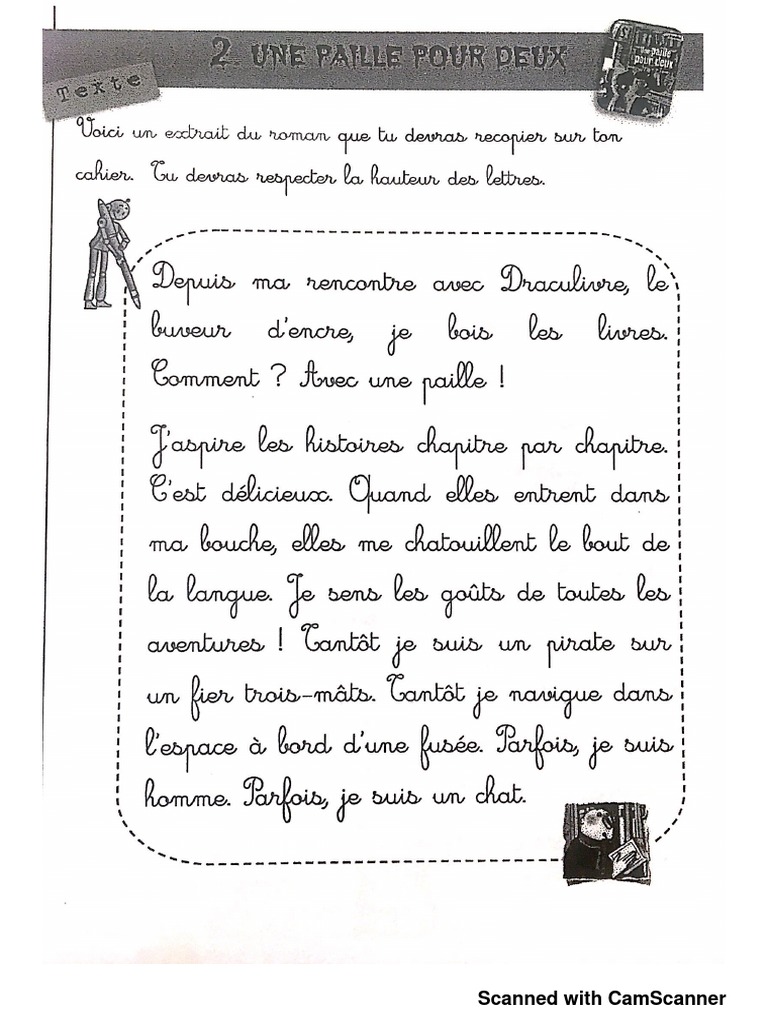 2 UNE PAILLE POUR DEUX
Texte
Une paille
pour deux
Voici un extrait du roman que tu devras recopier sur ton
cahier. Tu devras respecter la hauteur des lettres.
Depuis ma rencontre avec Draculivre, le
buveur d'encre, je bois les livres.
Comment ? Avec une paille !
J'aspire les histoires chapitre par chapitre.
C'est délicieux. Quand elles entrent dans
ma bouche, elles me chatouillent le bout de
la langue. Je sens les goûts de toutes les
aventures ! Tantôt je suis un pirate sur
un fier trois-mâts. Tantôt je navigue dans
l'espace à bord d'une fusée. Parfois, je suis
homme. Parfois, je suis un chat.
Scanned with CamScanner